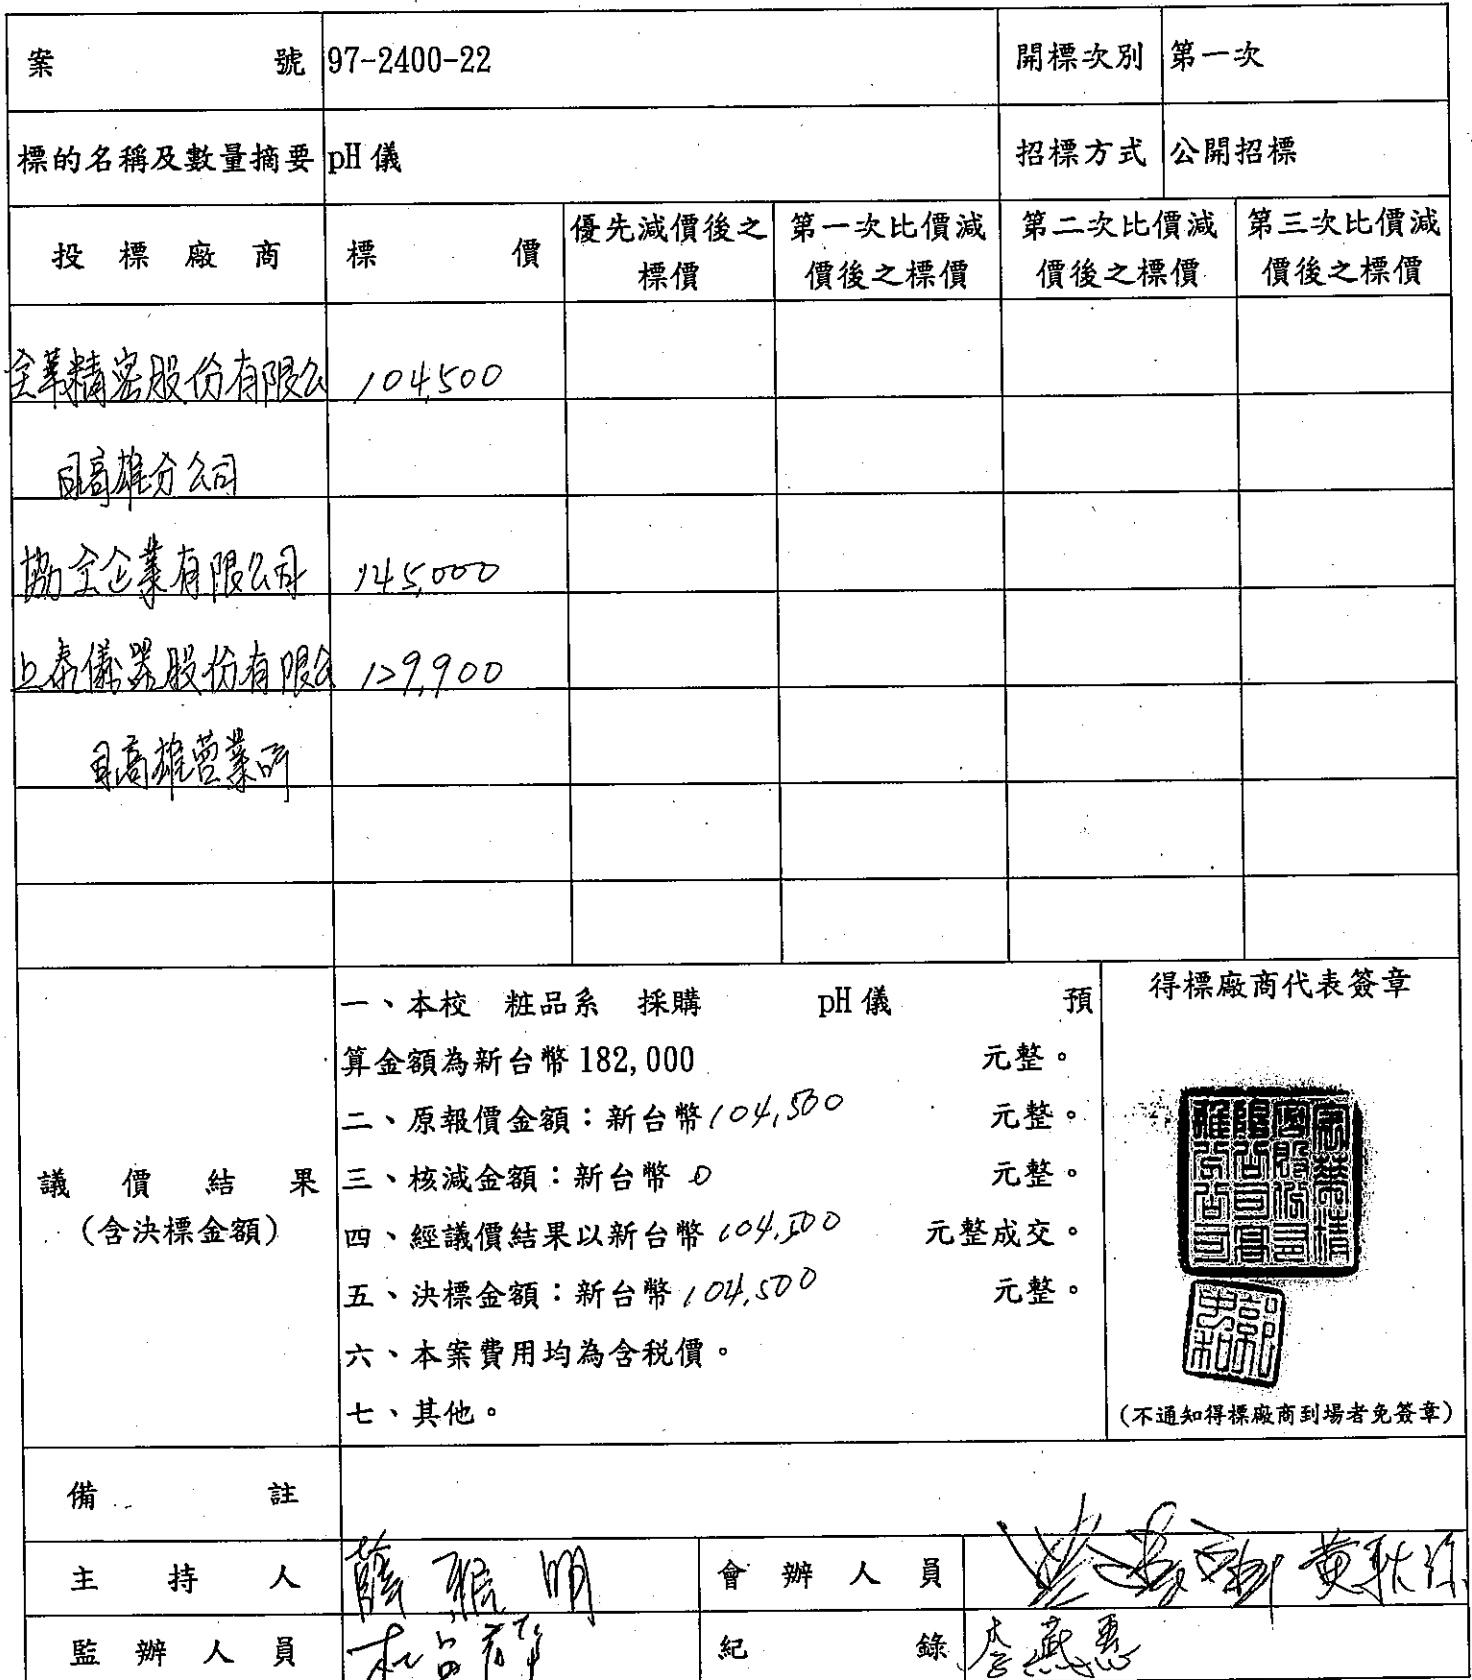 案 號 97-2400-22 開標次別 第一次
標的名稱及數量摘要 pH 儀 招標方式 公開招標
投標廠商 標價 優先減價後之標價 第一次比價減價後之標價 第二次比價減價後之標價 第三次比價減價後之標價
精密股份有限公 104,500
司高雄分公司
協全企業有限公司 145,000
上泰儀器股份有限公 129,900
司高雄營業所
議價結果
(含決標金額)
一、本校 粧品系 採購 pH 儀 預
算金額為新台幣 182,000 元整。
二、原報價金額：新台幣 104,500 元整。
三、核減金額：新台幣 0 元整。
四、經議價結果以新台幣 104,500 元整成交。
五、決標金額：新台幣 104,500 元整。
六、本案費用均為含稅價。
七、其他。
得標廠商代表簽章
(不通知得標廠商到場者免簽章)
備註
主持人 會辦人員
監辦人員 紀錄 李燕惠